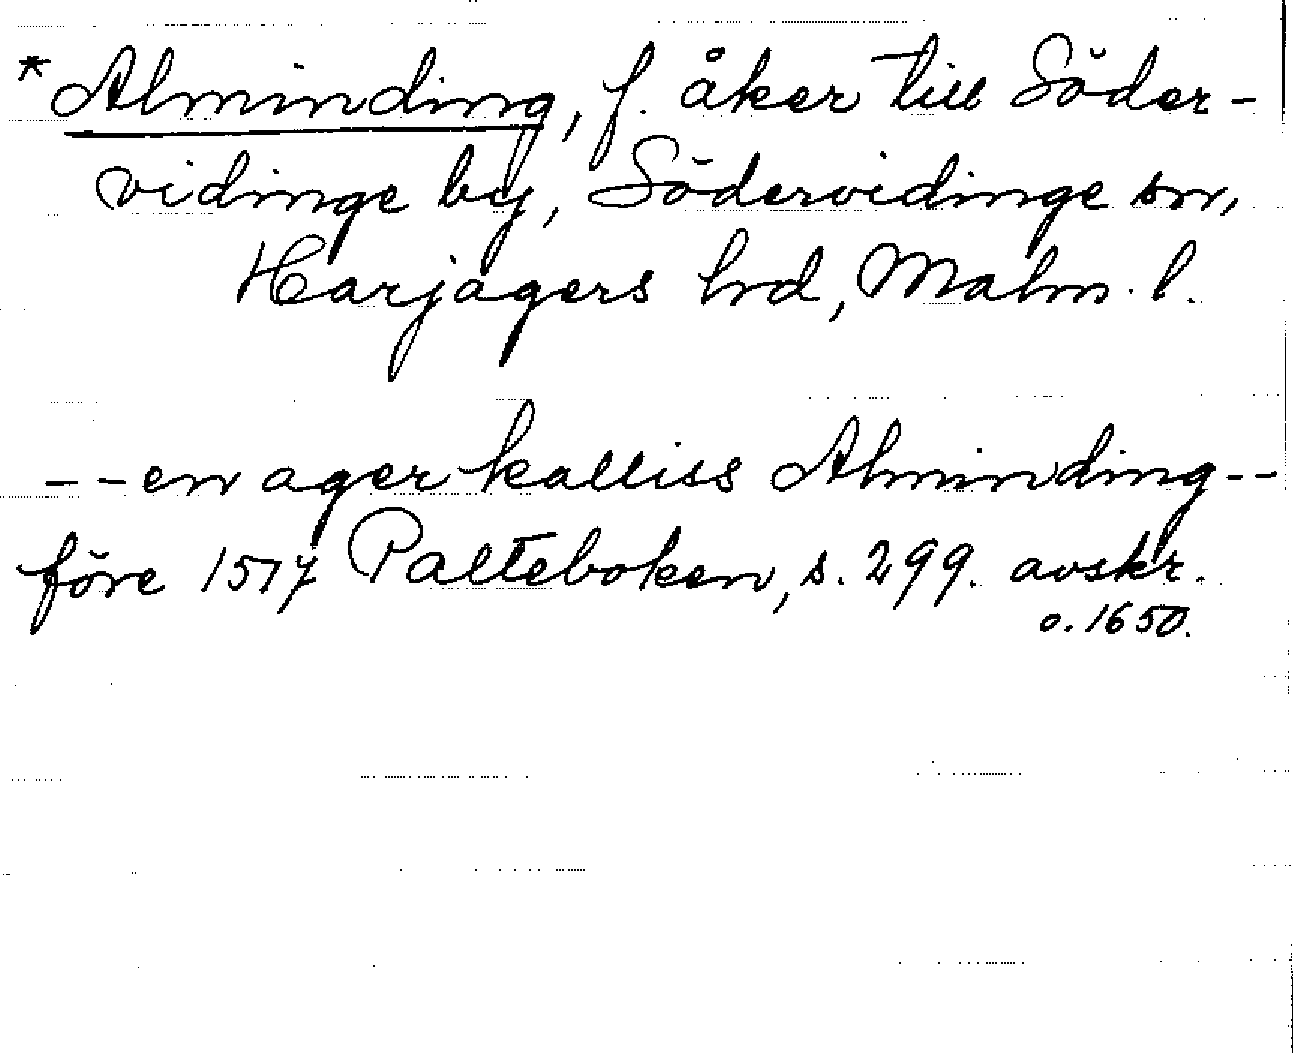 *Alminding, f. åker till Söder-
vidinge by, Södervidinge sn,
Harjagers hd, Malm. l.
--en ager kalliss Alminding--
före 1517 Palteboken, s. 299. avskr.
o. 1650.